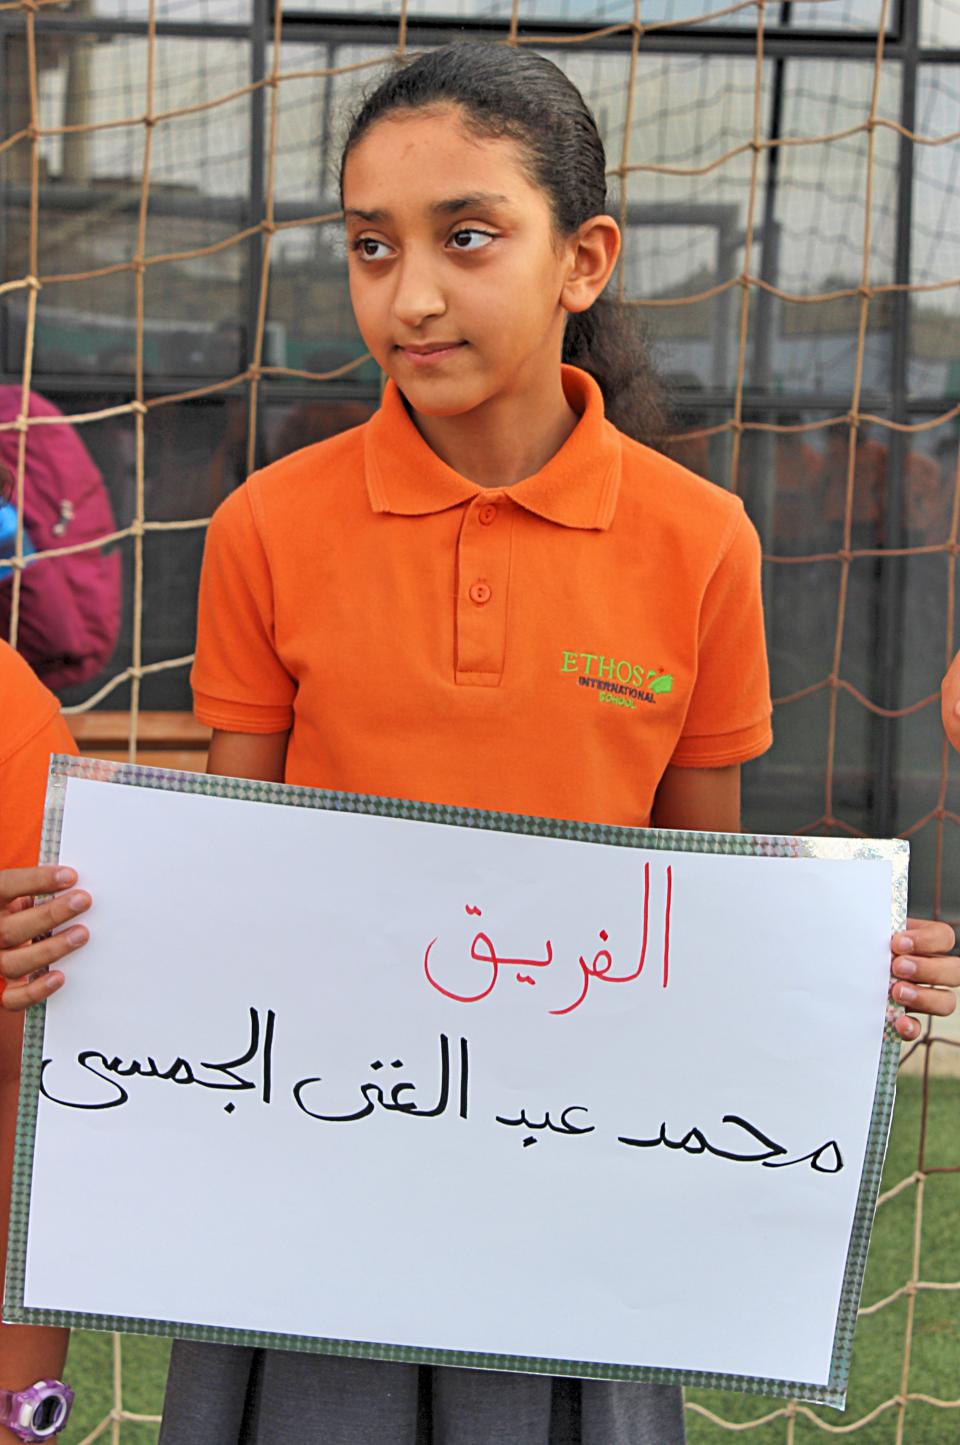 ETHOS
INTERNATIONAL
SCHOOL
الفريق
محمد عبد الغنى الجمسى